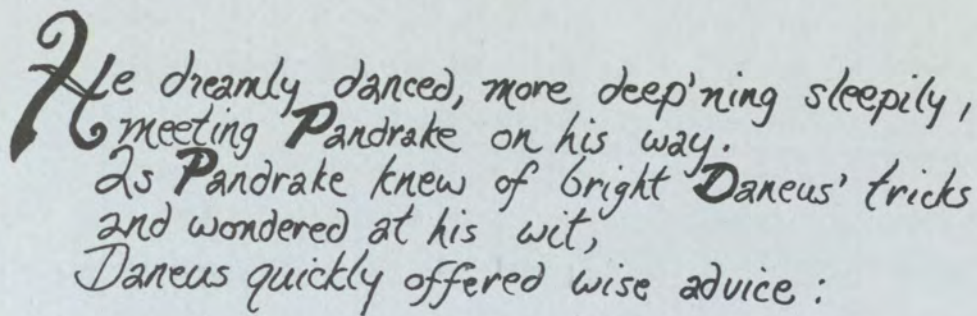 He dreamly danced, more deep'ning sleepily,
meeting Pandrake on his way.
As Pandrake knew of bright Daneus' tricks
and wondered at his wit,
Daneus quickly offered wise advice: